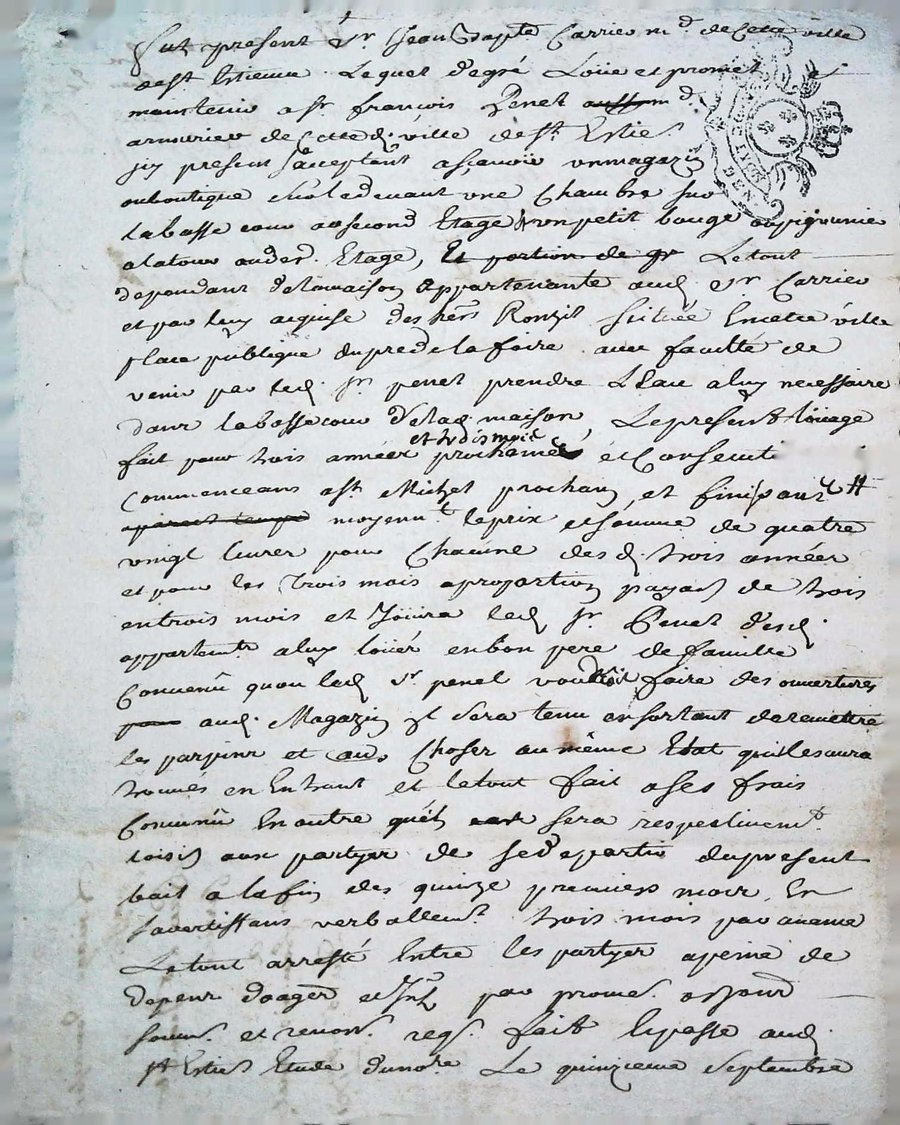 fut present Sr Jean Bapte Carrier md de cette ville
de st Estienne Lequel degré Loüe et promet
maintenir a Sr françois Penel md
armurier de cette d. ville de st Estie
icy present & acceptant ascavoir un magazin
ou boutique sur le devant une Chambre sur
la basse cour au second Etage & un petit bouge ou pigonnier
a la tour aud. Etage, Et portion de gr Le tout
dependant de la maison appartenante aud Sr Carrier
et par luy aquise des hers Ronzil Scituée En cette ville
place publique du pré de la foire avec faculté de
venir par led. Sr penel prendre L'Eau a luy necessaire
dans la basse cour de lad maison, Le present loüage
fait pour trois années et trois mois prochaines et Consecuti
Commenceans a st Michel prochain et finissant
moyent le prix et somme de quatre
vingt livres pour Chacune desd. trois années
et pour les Trois mois a proportion payab de trois
en trois mois et Joüira led Sr Penel desd.
appartemts a luy loüés en bon pere de famille
Convenû que ou led Sr penel voudroit faire des ouvertures
pour aud. Magazin il sera tenu en sortant de remettre
les parpins et au Choses au même Etat qu'il les aura
trouvés en Entrant et le tout fait a ses frais
Convenû En outre quil sera respectivemt
loisib aux partyes de se departir du present
bail a la fin des quinze premiers mois En
s'avertissans verballemt trois mois par avance
Le tout arresté Entre les partyes a peine de
depens domag et Int par promes.
soums. et renon. reqs. fait & passé aud
st Estie Etude du nore Le quinzieme Septembre